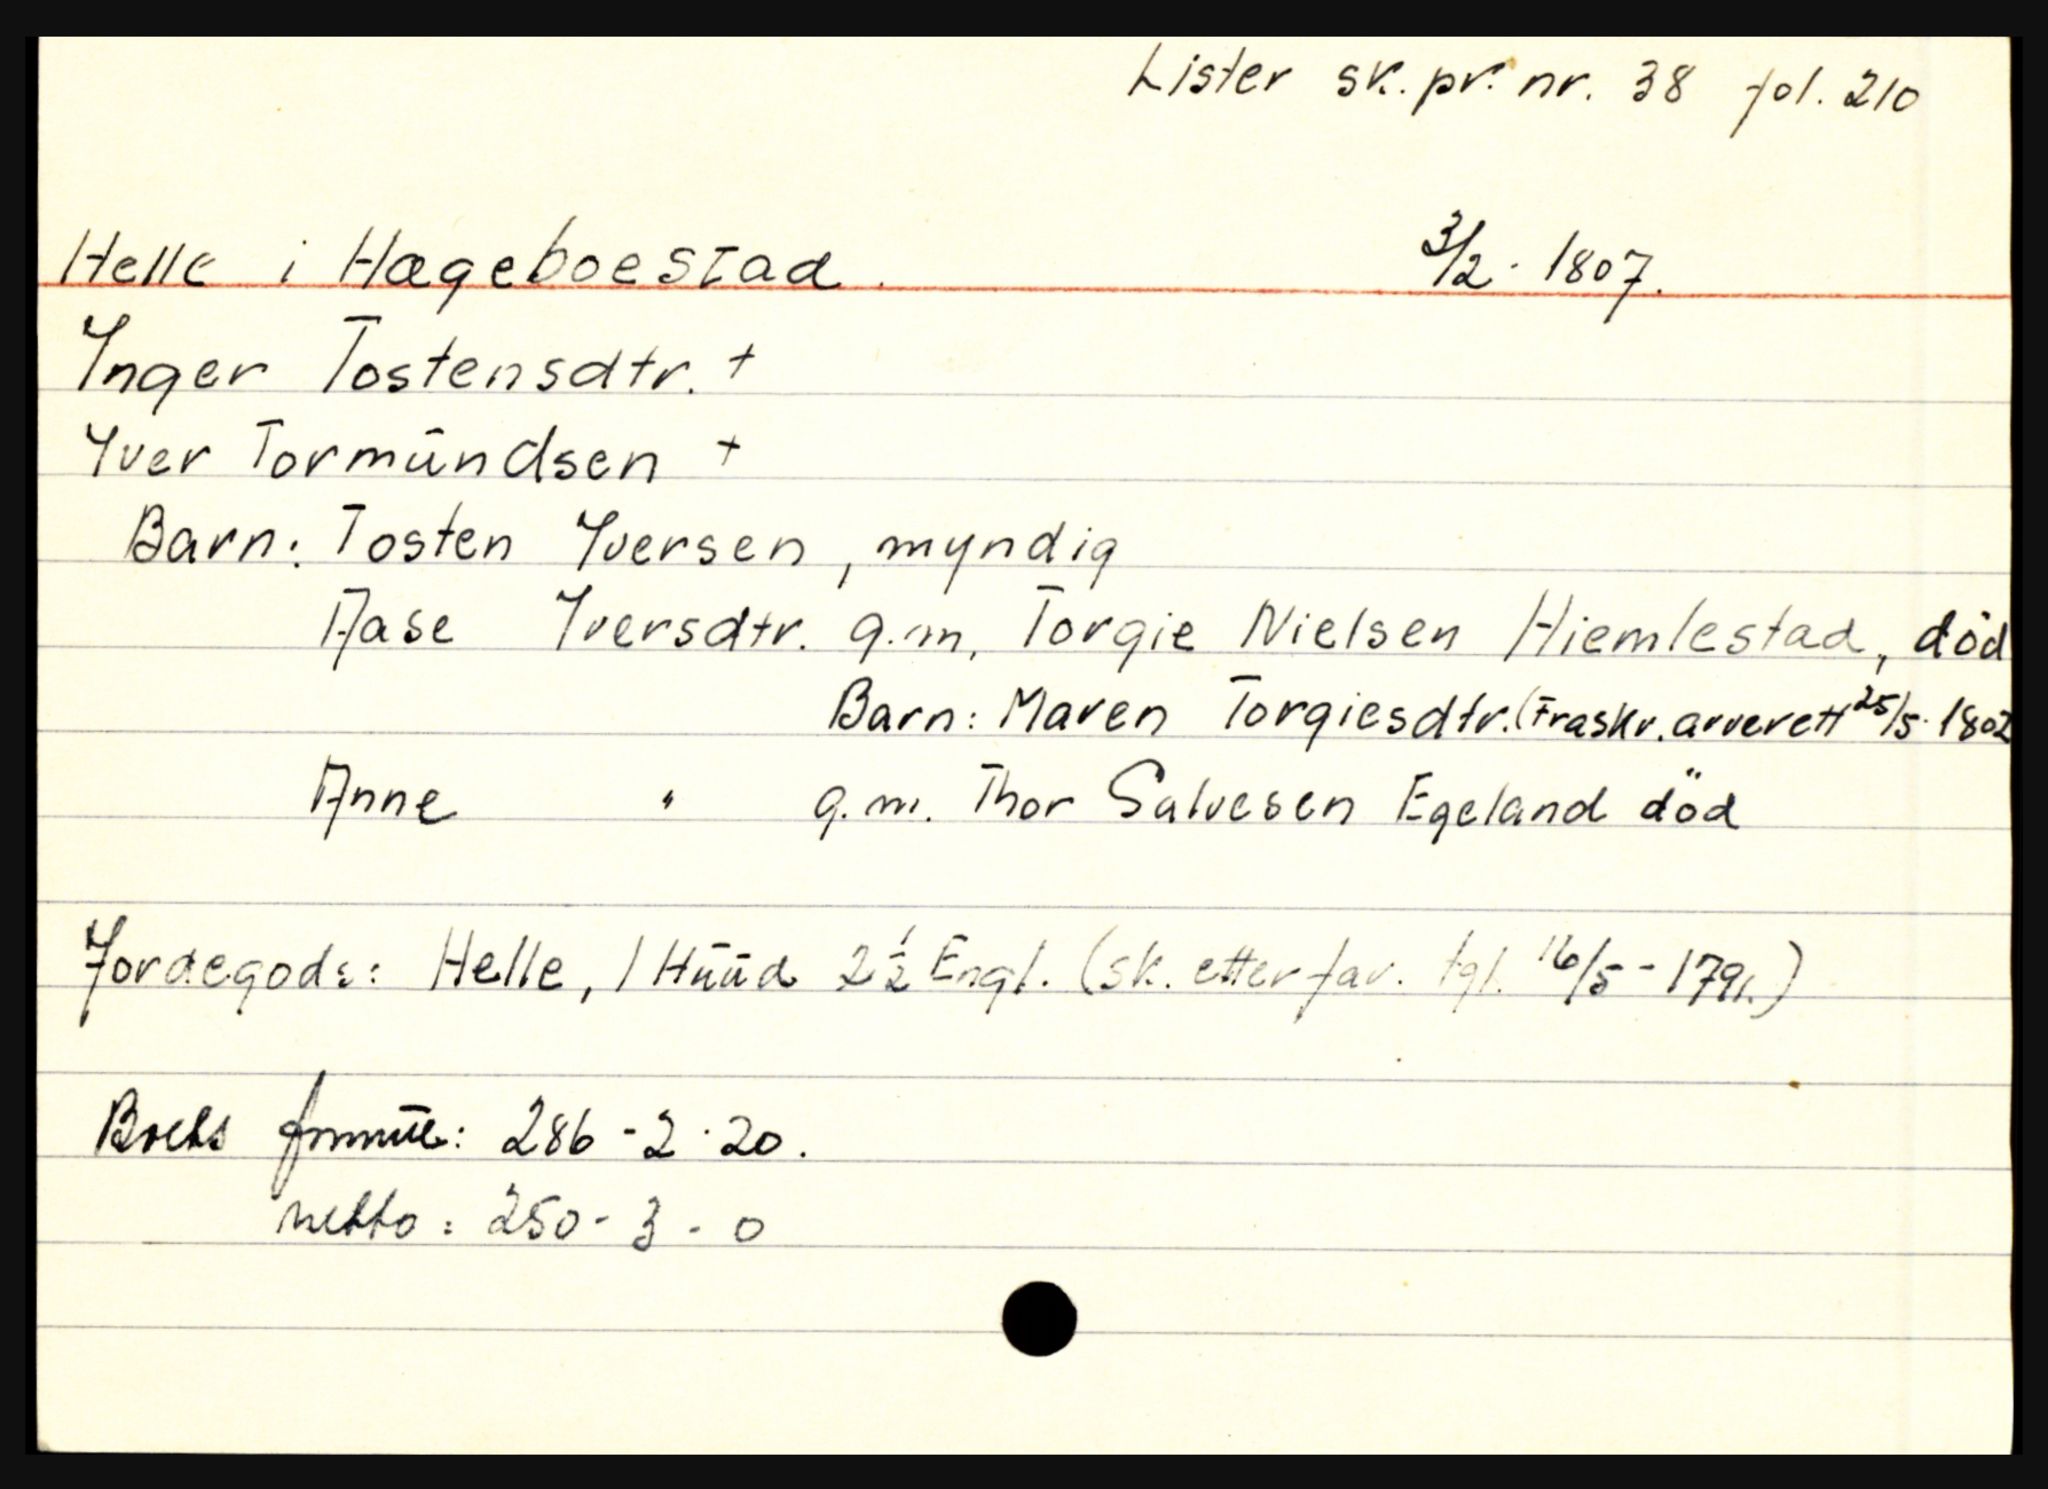 Lister sk.pr. nr. 38 fol. 210
Helle i Hægeboestad. 3/2 - 1807.
Inger Tostensdtr. +
Iver Tormündsen +
Barn: Tosten Iversen, myndig
Aase Iversdtr. g.m. Torgie Nielsen Hiemlestad, död
Barn: Maren Torgiesdtr. (Fraskr. arverett 25/5 - 1802
Anne " g.m. Thor Salvesen Egeland död
Jordegods: Helle, 1 Hüüd 2 1/2 Engl. (sk. etter far. tgl. 16/5 - 1791.)
Boets : 286 - 2 - 20.
netto : 250 - 3 - 0